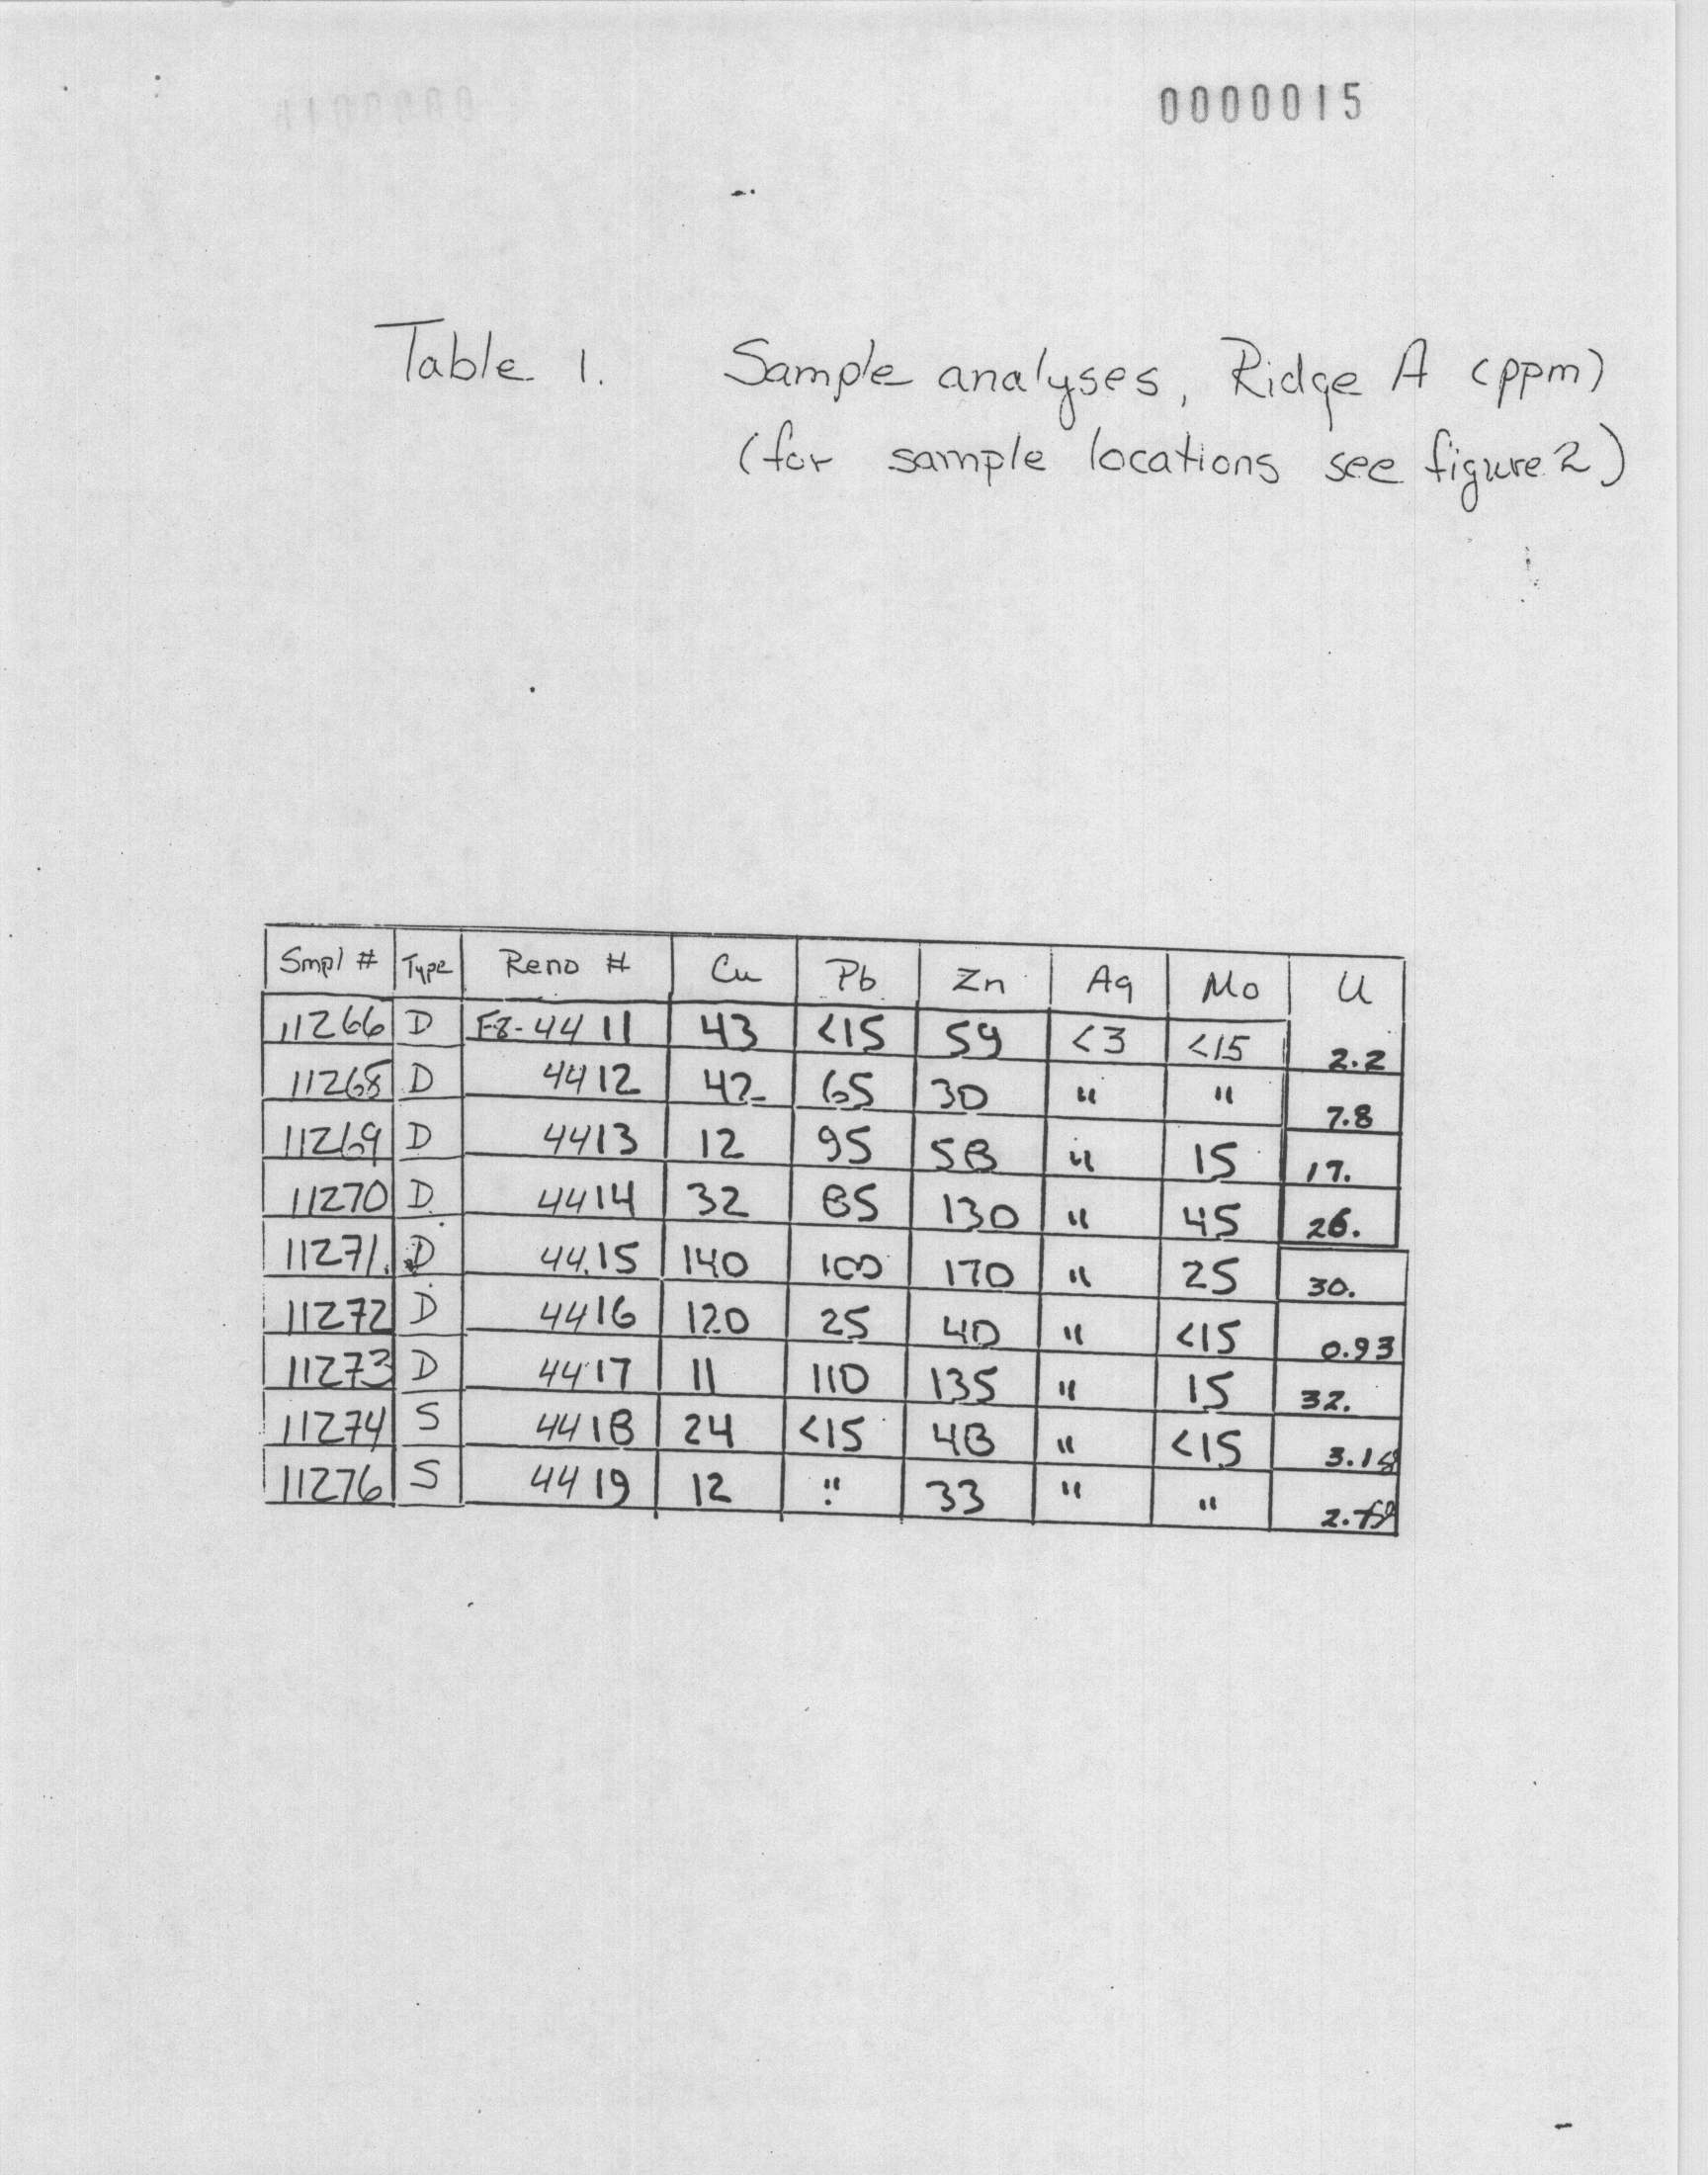 0000015
Table 1. Sample analyses, Ridge A (ppm)
(for sample locations see figure 2)
Smpl # Type Reno # Cu Pb Zn Ag Mo U
11266 D F8-4411 43 <15 59 <3 <15 2.2
11268 D 4412 42 65 30 " " 7.8
11269 D 4413 12 95 58 " 15 17.
11270 D 4414 32 85 130 " 45 26.
11271 D 4415 140 100 170 " 25 30.
11272 D 4416 120 25 40 " <15 0.93
11273 D 4417 11 110 135 " 15 32.
11274 S 4418 24 <15 48 " <15
11276 S 4419 12 " 33 " "